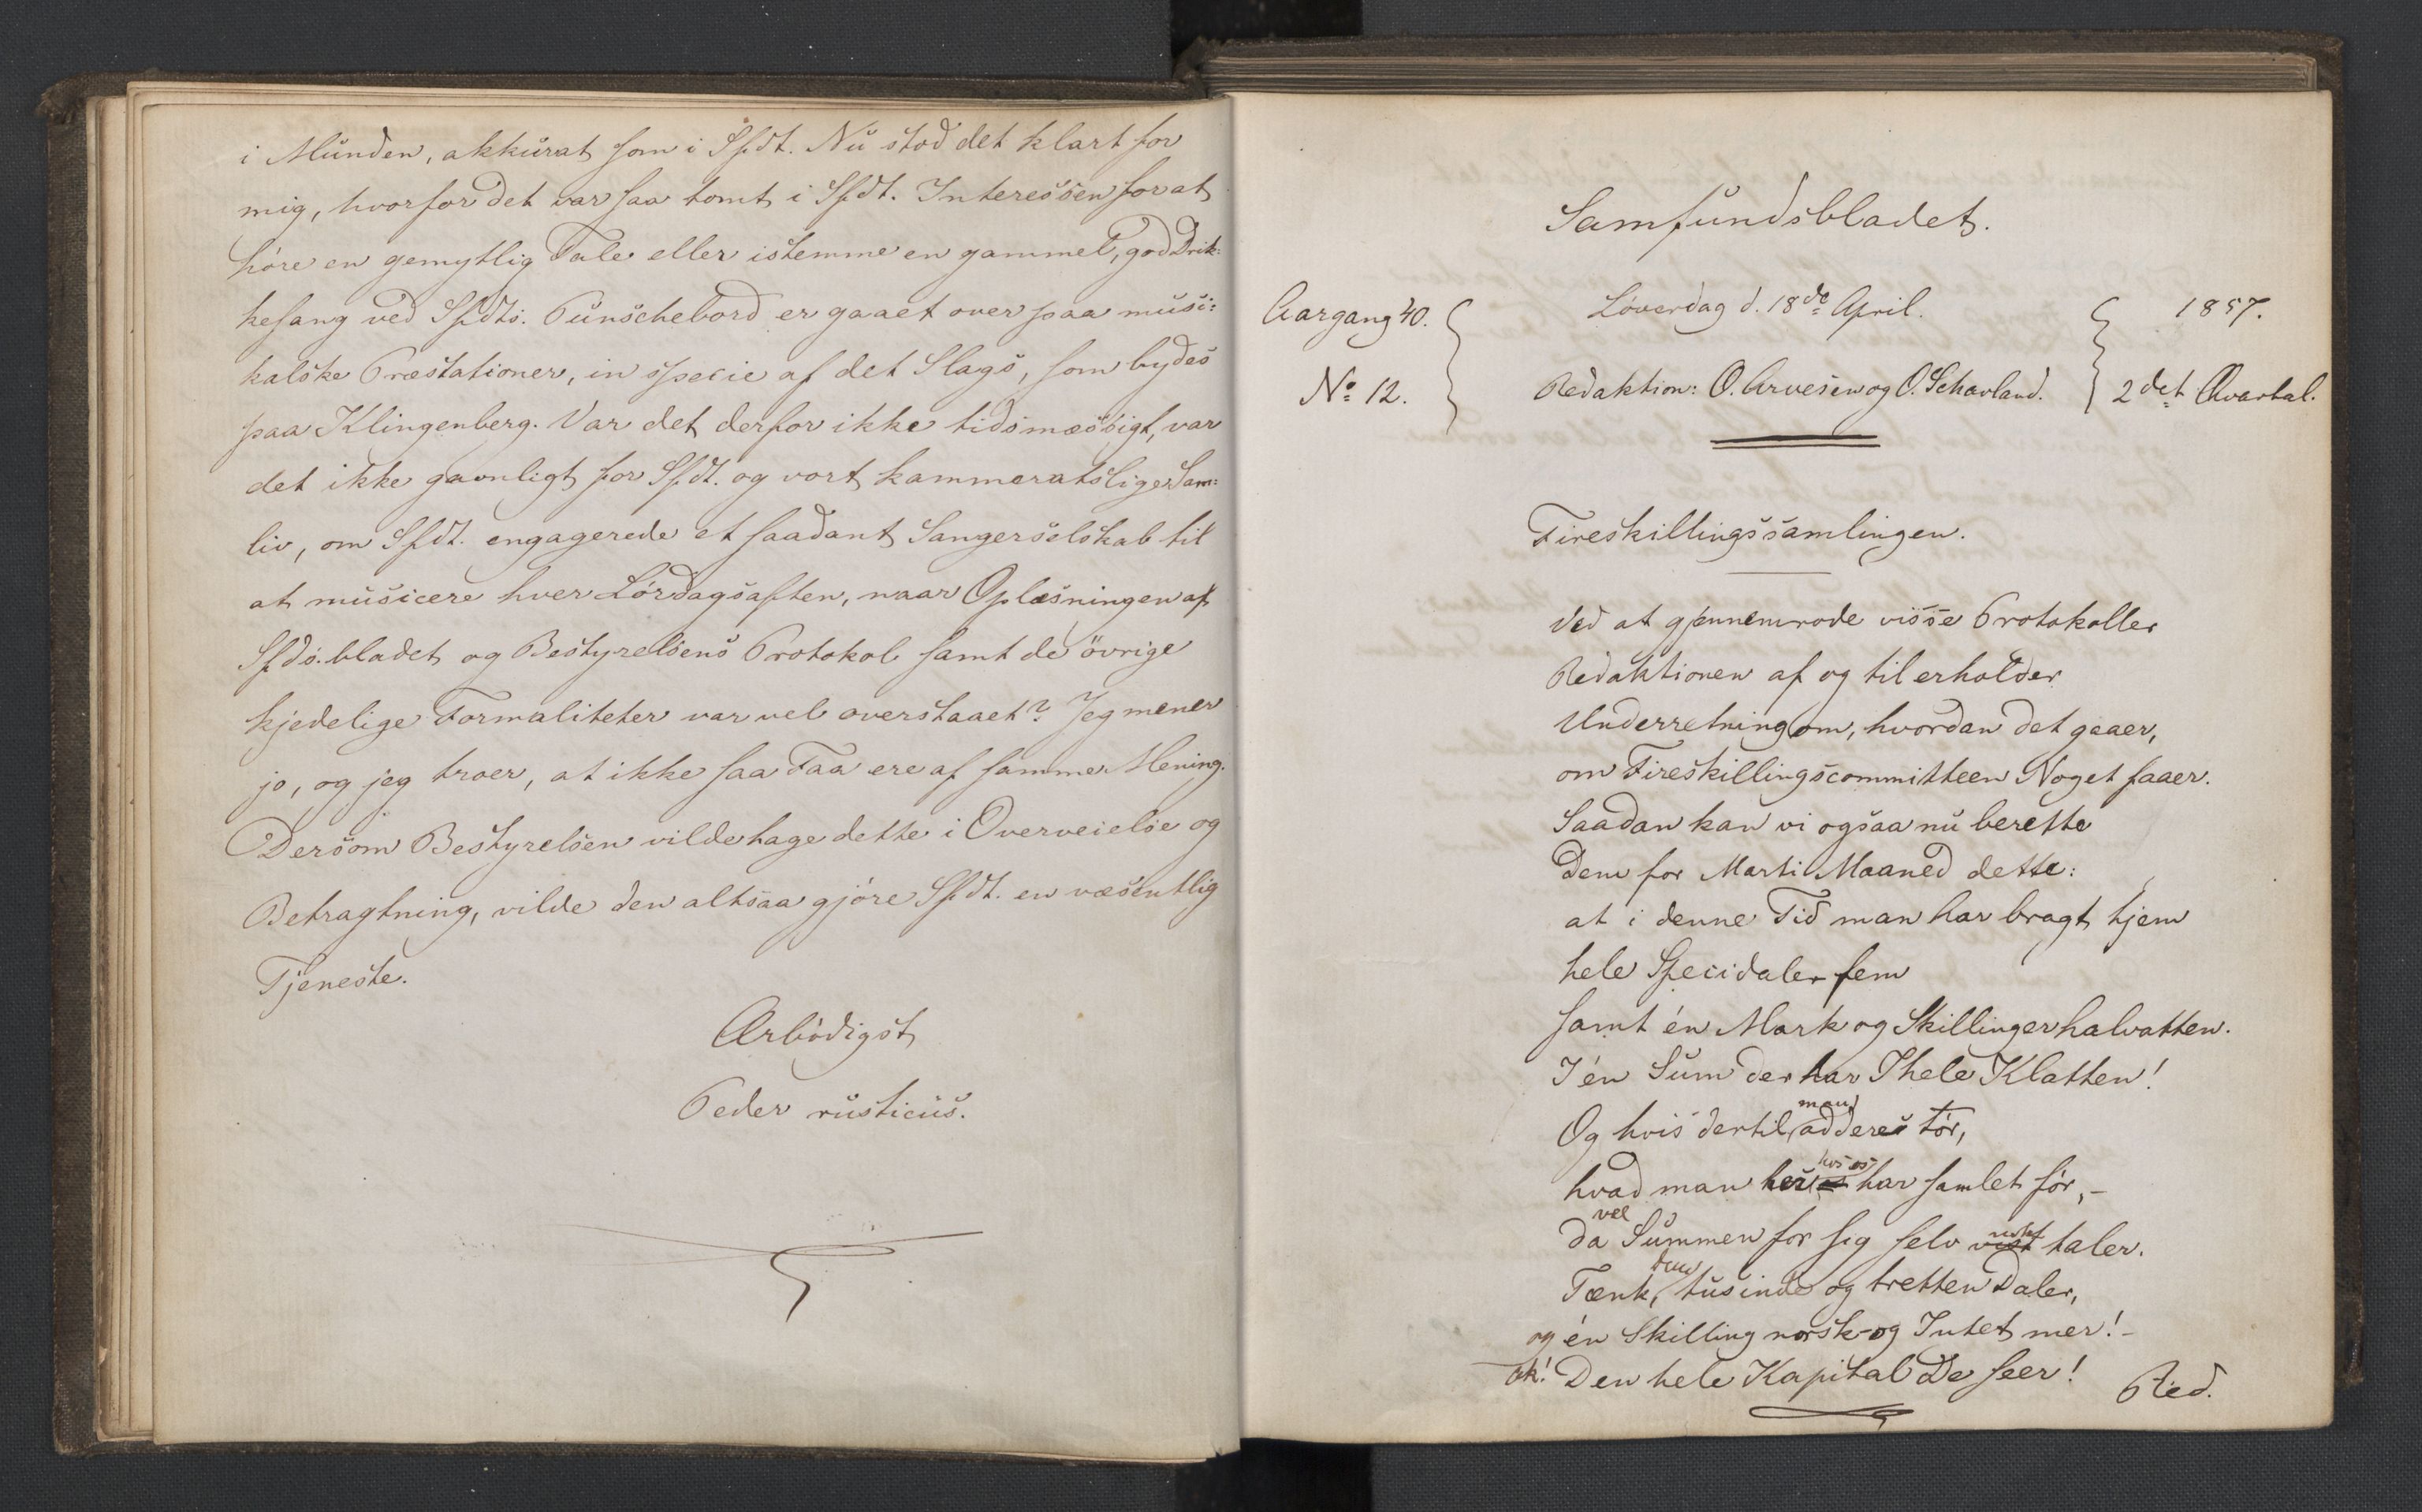 i Munden, akkurat som i Sfdt. Nu stod det klart for
mig, hvorfor det var saa tomt i Sfdt. Interessen for at
höre en gemytlig Tale eller istemme en gammel, god Drik=
kesang ved Sfdts. Punschebord er gaaet over paa musi=
kalske Præstationer, in specie af det Slags, som bydes
paa Klingenberg. Var det derfor ikke tidsmæssigt, var
det ikke gavnligt for Sfdt. og vort kammeratslige Sam=
liv, om Sfdt. engagerede et saadant Sangerselskab til
at musicere hver Lördagsaften, naar Oplæsningen af
Sfds.bladet og Bestyrelsens Protokol samt de övrige
kjedelige Formaliteter var vel overstaaet? Jeg mener
jo, og jeg troer, at ikke saa Faa ere af samme Mening.
Dersom Bestyrelsen vilde tage dette i Overveielse og
Betragtning, vilde den altsaa gjöre Sfdt. en væsentlig
Tjeneste.
Ærbödigst
Peder rusticus.
Samfundsbladet.
Aargang 40. Löverdag d. 18de April. 1857.
No 12. Redaktion: O. Arvesen og O. Schavland. 2det Qvartal.
Fireskillingssamlingen.
Ved at gjennemrode visse Protokoller
Redaktionen af og til erholder
Underretning om, hvordan det gaaer,
om Fireskillingscommitteen Noget faaer.
Saadan kan vi ogsaa nu berette
Dem for Marti Maaned dette:
at i denne Tid man har bragt hjem
hele Specidaler fem
samt én Mark og Skillinger halvatten.
I én Sum der har I hele Klatten!
Og hvis dertil man adderes tör,
hvad man hos os har samlet för, –
da vel Summen for sig selv taler.
Tænk, tusinde og tretten Daler,
og én Skilling norsk og Intet mer! –
ak! Den hele Kapital De seer!
Red.